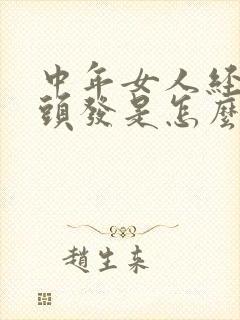 中年女人经
頭發是怎麼
趙生来